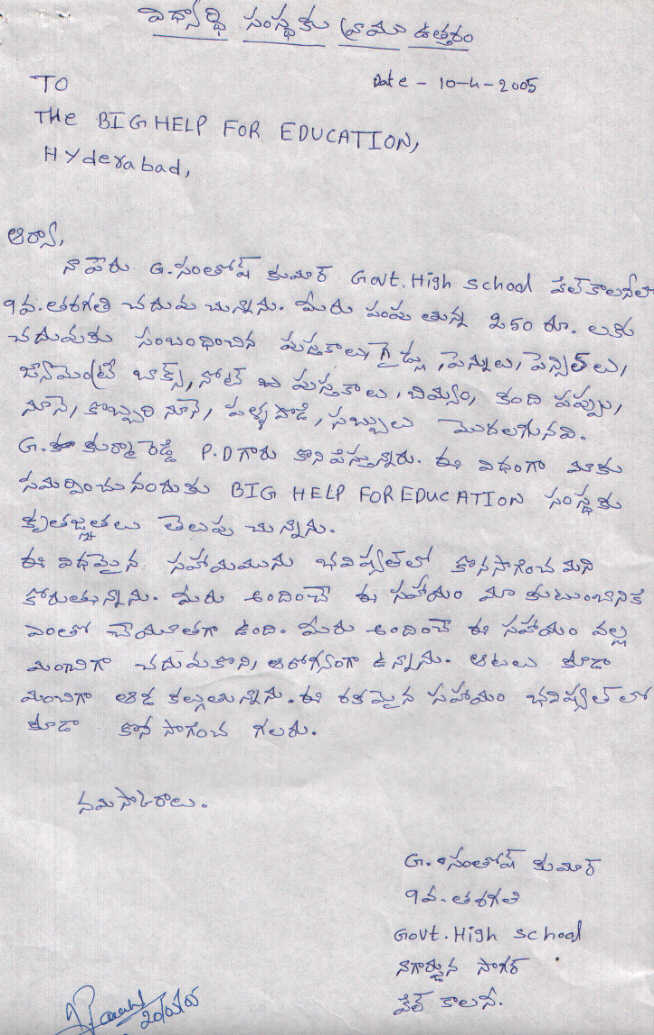 విద్యార్థి సంస్థకు వ్రాయు ఉత్తరం
TO Date - 10-4-2005
THe BIG HELP FOR EDUCATION,
Hyderabad,
ఆర్యా,
నా పేరు G. సంతోష్ కుమార్ Govt. High school పైలాన్ కాలనీలో
9వ. తరగతి చదువు చున్నాను. మీరు పంపు తున్న 250 రూ. లకు
చదువుకు సంబంధించిన పుస్తకాలు, గైడ్లు, పెన్నులు, పెన్సిల్ లు,
జామెంట్రీ బాక్స్, నోట్ బు పుస్తకాలు, బియ్యం, కంది పప్పు,
నూనె, కొబ్బరి నూనె, పళ్ళ పొడి, సబ్బులు మొదలగునవి.
G. కుర్మా రెడ్డి P.D గారు కొని పిస్తున్నారు. ఈ విధంగా మాకు
సమర్పించు నందుకు BIG HELP FOR EDUCATION సంస్థకు
కృతజ్ఞతలు తెలుపు చున్నాను.
ఈ విధమైన సహాయమును భవిష్యత్ లో కొనసాగించ మని
కోరుతున్నాను. మీరు అందించే ఈ సహాయం మా కుటుంబానికి
ఎంతో చేయూతగా ఉంది. మీరు అందించే ఈ సహాయం వల్ల
మంచిగా చదువుకొని, ఆరోగ్యంగా ఉన్నాను. ఆటలు కూడా
మంచిగా ఆడ కల్గుతున్నాను. ఈ రకమైన సహాయం భవిష్యత్ లో
కూడా కొన సాగించ గలరు.
నమస్కారాలు.
G. సంతోష్ కుమార్
9వ. తరగతి
Govt. High school
నాగార్జున సాగర్
పైలాన్ కాలనీ.
20/05/05